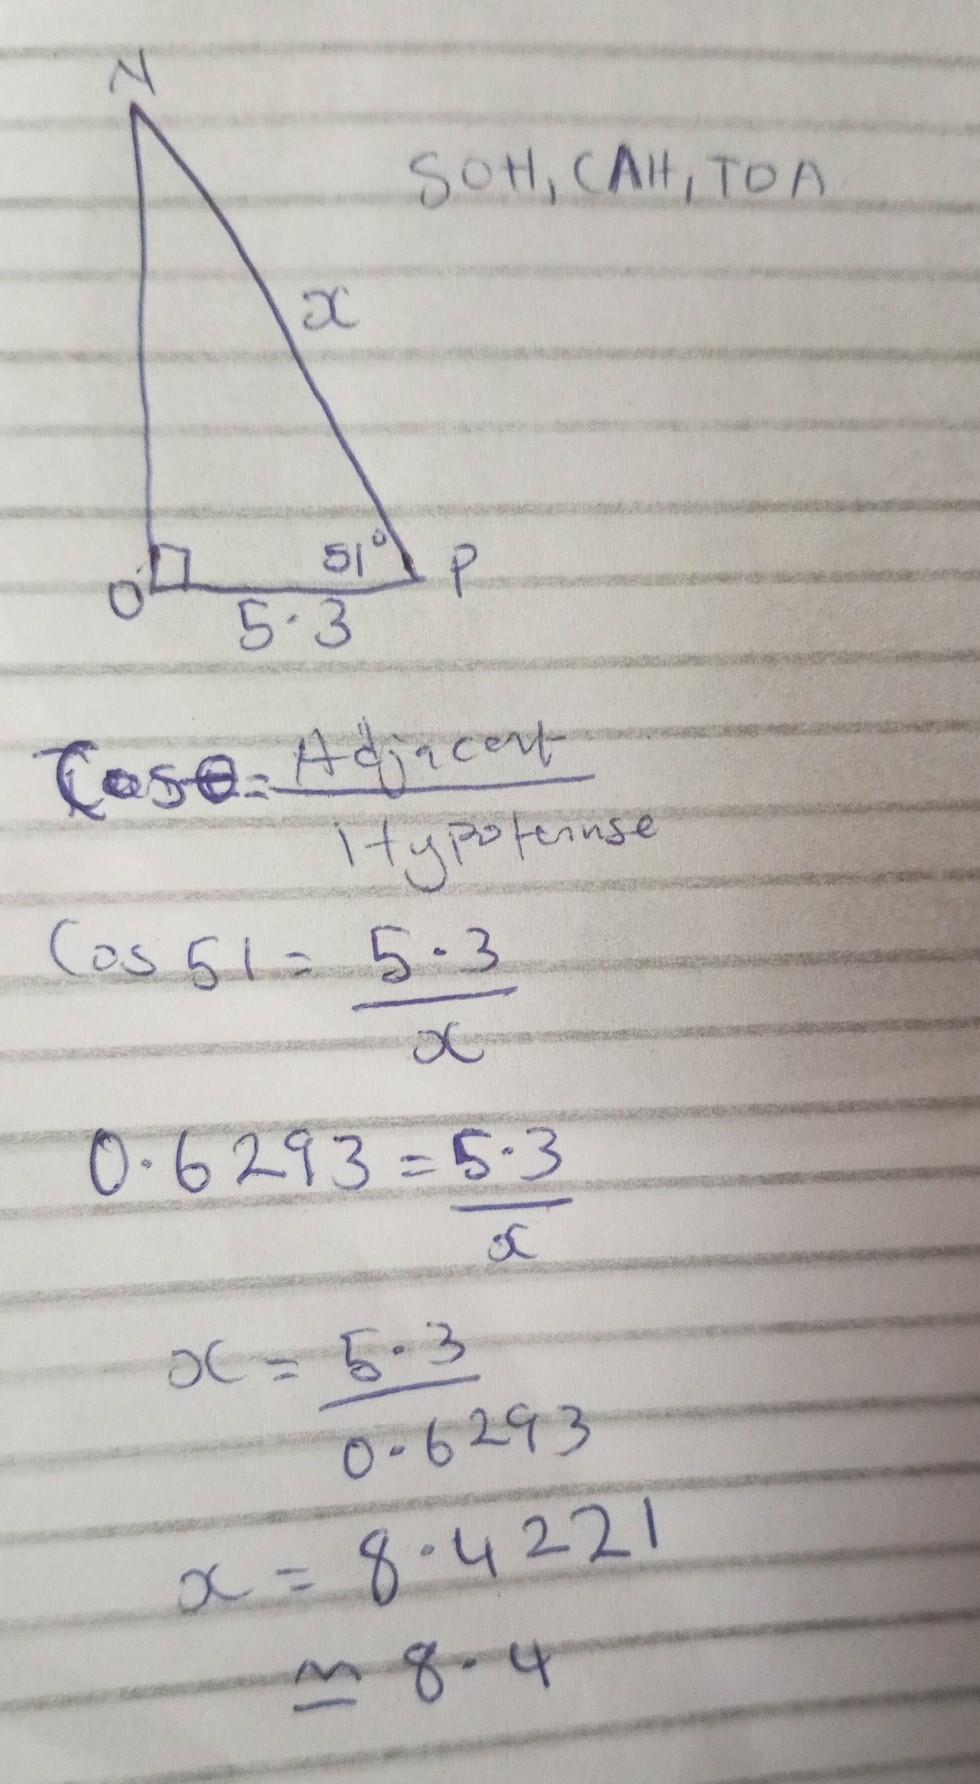 N
SOH, CAH, TOA
x
51°
O
P
5.3
Cosθ = Adjacent
Hypotenuse
Cos 51 = 5.3
x
0.6293 = 5.3
x
x = 5.3
0.6293
x = 8.4221
≃ 8.4